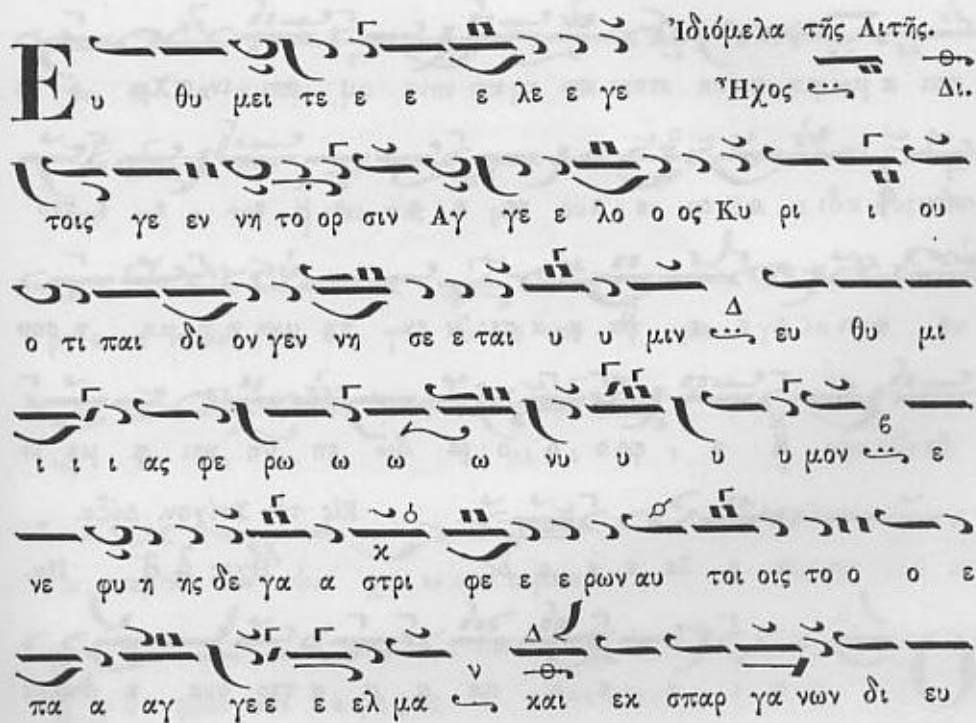 Ἰδιόμελα τῆς Λιτῆς.
Ε υ θυ μει τε ε ε ε λε ε γε Ἦχος Δι.
τοις γε εν νη το ορ σιν Αγ γε ε λο ο ος Κυ ρι ι ου
ο τι παι δι ον γεν νη σε ε ται υ υ μιν Δ ευ θυ μι
ι ι ι ας φε ρω ω ω ω νυ υ υ υ μον ϐ ε
νε φυ η ης δε γα α στρι φε ε ε ρων αυ τοι οις το ο ο ε
πα α αγ γε ε ε ε ελ μα ν και εκ σπαρ γα νων δι ευ